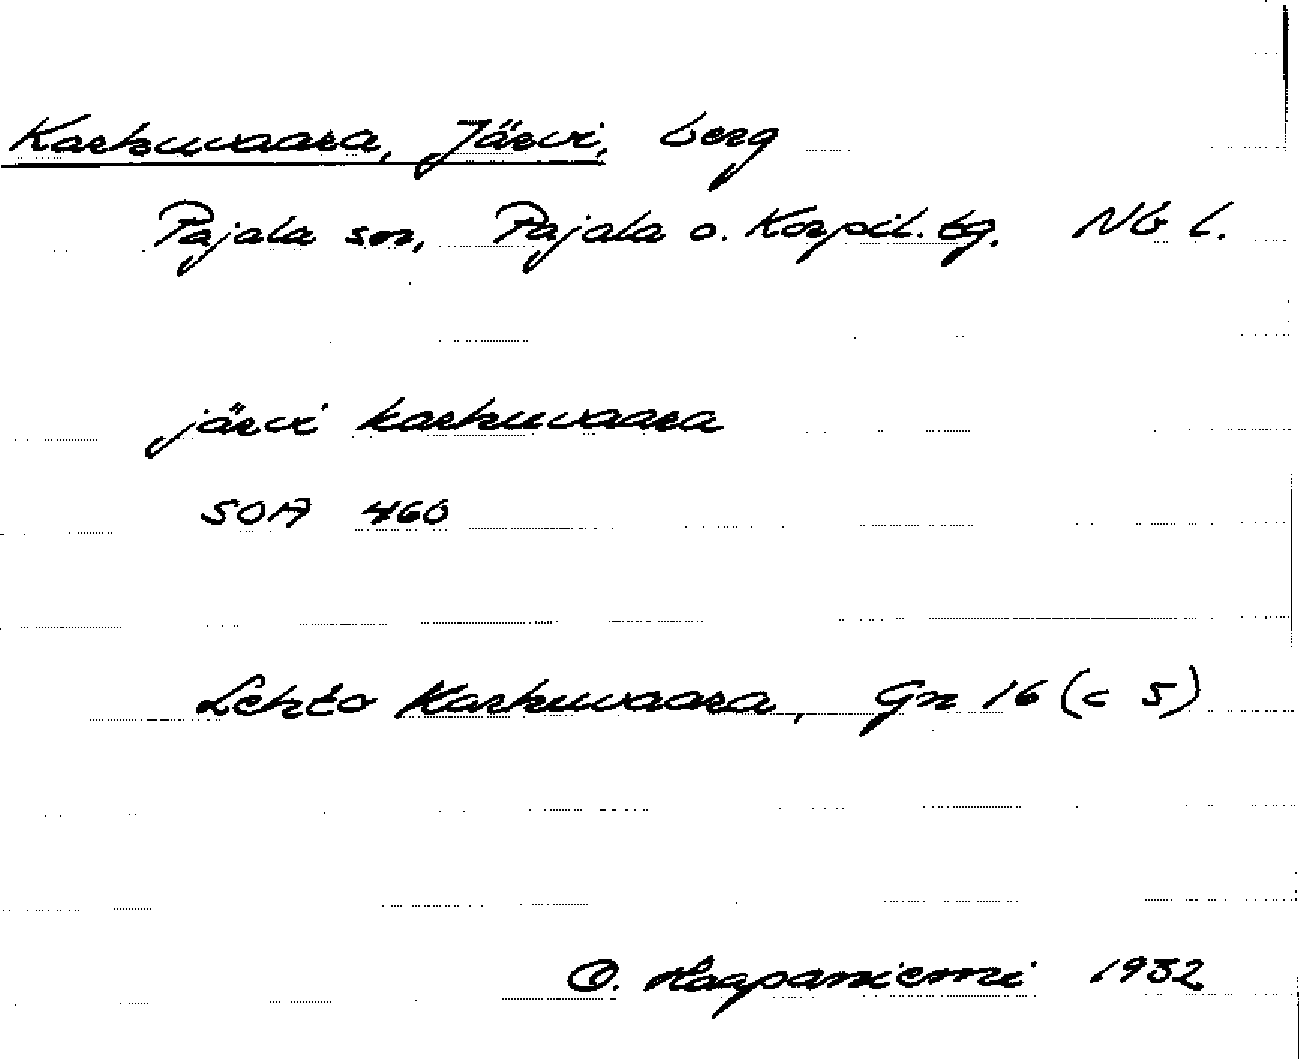 Karhuvaara, Järvi, berg
Pajala sn, Pajala o. Korpil. tg. Nb l.
järvi karhuvaara
SOA 460
Lehto Karhuvaara, Gn 16 (c 5)
O. Haapaniemi 1932